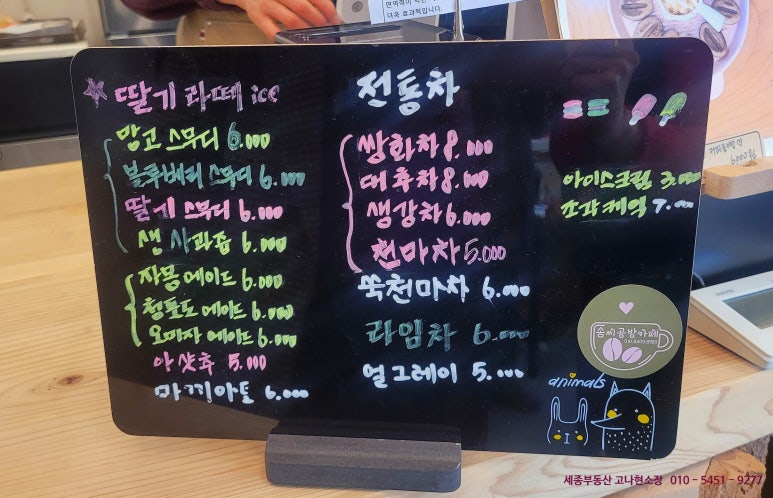 더욱 효과적입니다.
딸기 라떼 ice
망고 스무디 6.000
블루베리 스무디 6.000
딸기 스무디 6.000
생 사과즙 6.000
자몽에이드 6.000
청포도 에이드 6.000
오미자 에이드 6.000
아샷추 5.000
마끼아토 6.000
전통차
쌍화차 8.000
대추차 8.000
생강차 6.000
천마차 5.000
쑥천마차 6.000
라임차 6.000
얼그레이 5.000
아이스크림 3.000
조각케익 7.000
솜씨공방카페
animals
세종부동산 고나현소장 010 - 5451 - 9277